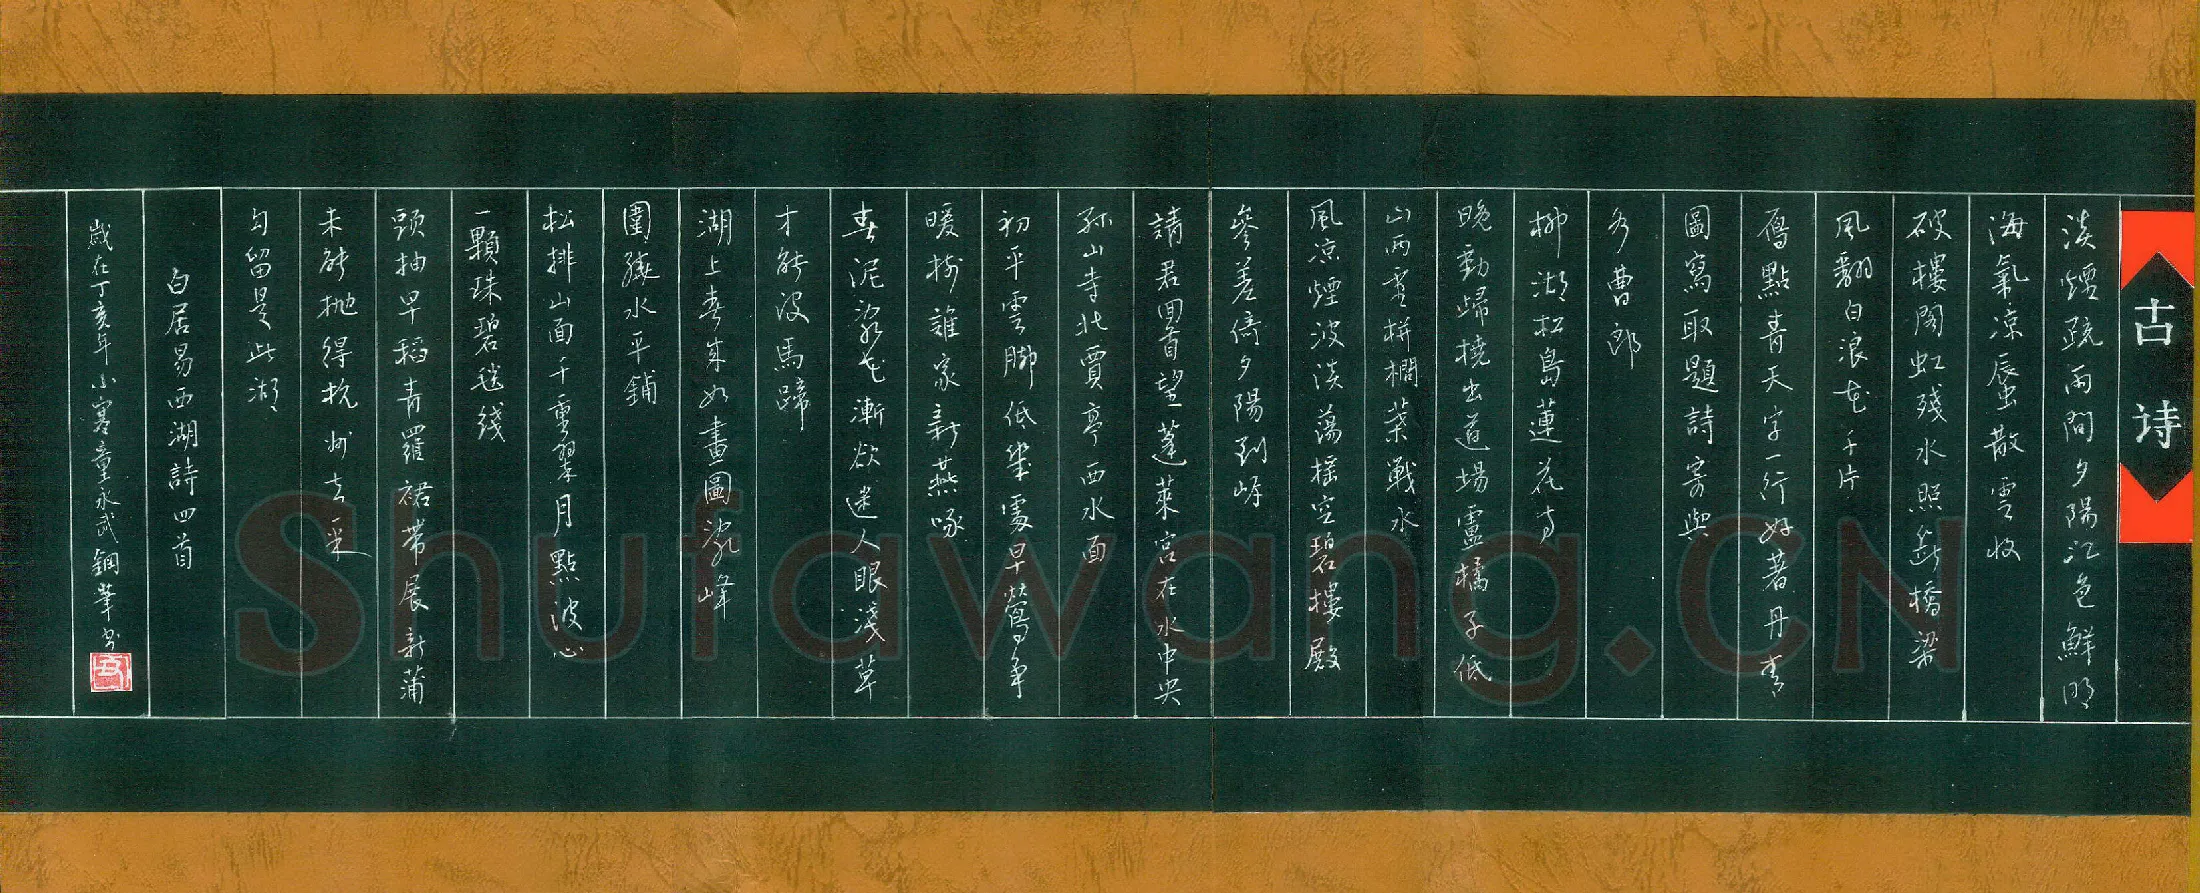 古诗
淡煙疏雨間夕陽江色鮮明
海氣凉蜃散雲收
破樓閣虹殘水照斷橋梁
風翻白浪花千片
雁點青天字一行好著丹青
圖寫取題詩寄與
水曹郎
柳湖松島蓮花寺
晚動歸橈出道場盧橘子低
山雨重栟櫚葉戰水
風凉煙波淡蕩摇空碧樓殿
參差倚夕陽到岸
請君回首望蓬萊宮在水中央
孤山寺北賈亭西水面
初平雲脚低幾處早鶯爭
暖樹誰家新燕啄
春泥亂花漸欲迷人眼淺草
才能沒馬蹄
湖上春來如畫圖亂峰
圍繞水平鋪
松排山面千重翠月點波心
一顆珠碧毯綫
頭抽早稻青羅裙帶展新蒲
未能抛得杭州去一半
勾留是此湖
白居易西湖詩四首
歲在丁亥年小寒童永武鋼筆書
Shufawang.CN